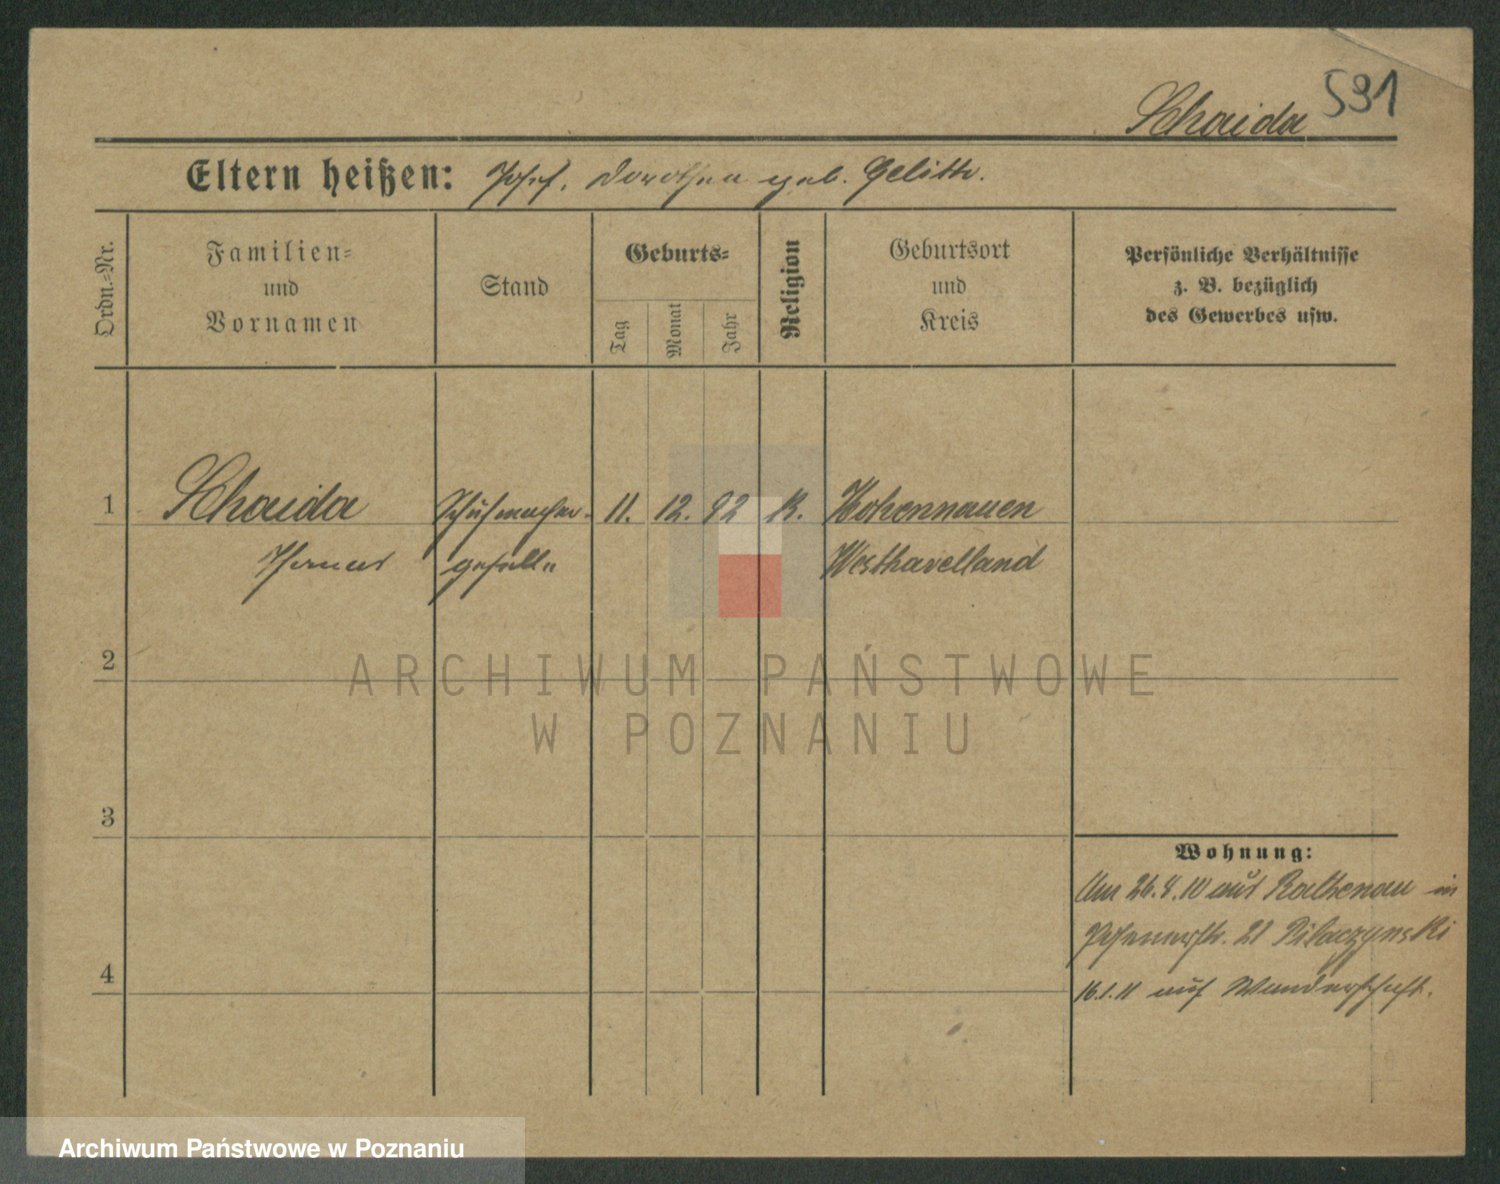 531
Schaida
Eltern heißen: Josef, Dorothea geb. Gelitte.
Ordn.-Nr.
Familien-
und
Vornamen
Stand
Geburts-
Tag
Monat
Jahr
Religion
Geburtsort
und
Kreis
Persönliche Verhältnisse
z. B. bezüglich
des Gewerbes usw.
1 Schaida Schuhmacher- 11. 12. 92 K. Hohennauen
geselle Westhavelland
2
ARCHIWUM PAŃSTWOWE
W POZNANIU
3
Wohnung:
Am 26.8.10 aus Rathenau in
Posenerstr. 21 Pilaczynski
4
16.1.11 auf Wanderschaft.
Archiwum Państwowe w Poznaniu